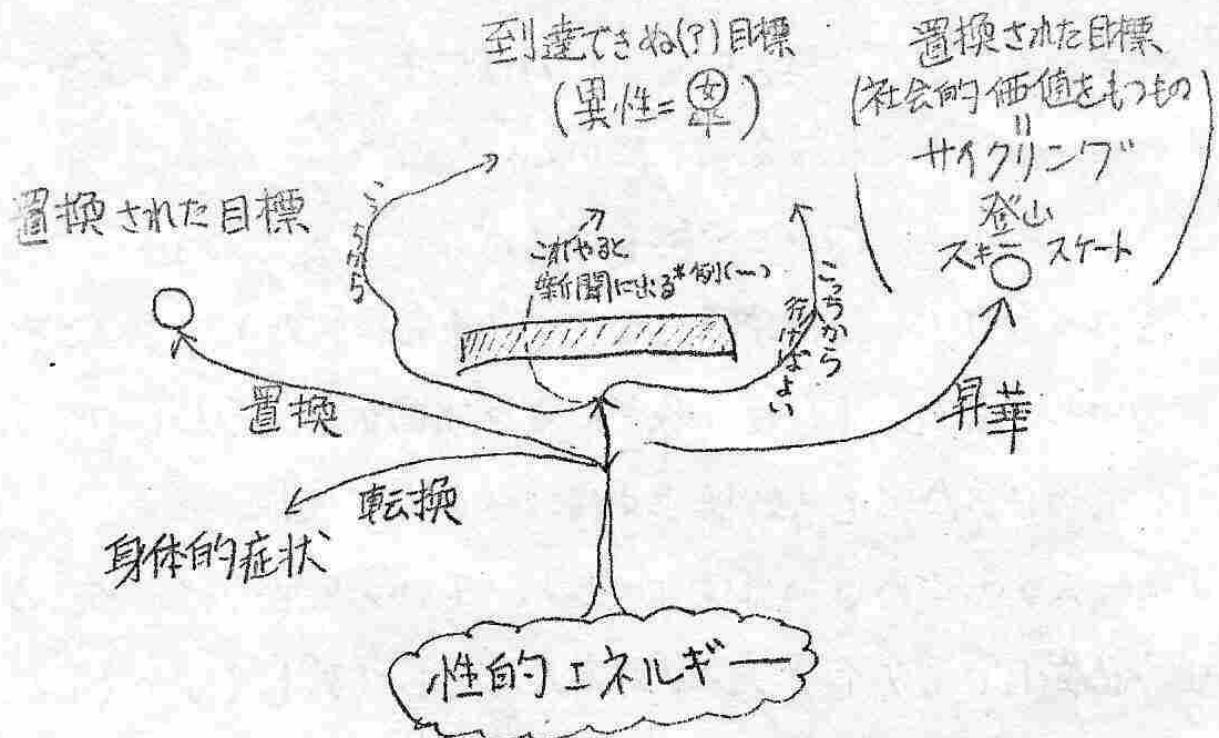 到達できぬ(?)目標
(異性=女)
置換された目標
(社会的価値をもつもの)
サイクリング
登山
スキー スケート
置換された目標
こっちから
これやると
新聞に出る*例(〜)
こっちから
行けばよい
置換
昇華
転換
身体的症状
性的エネルギー